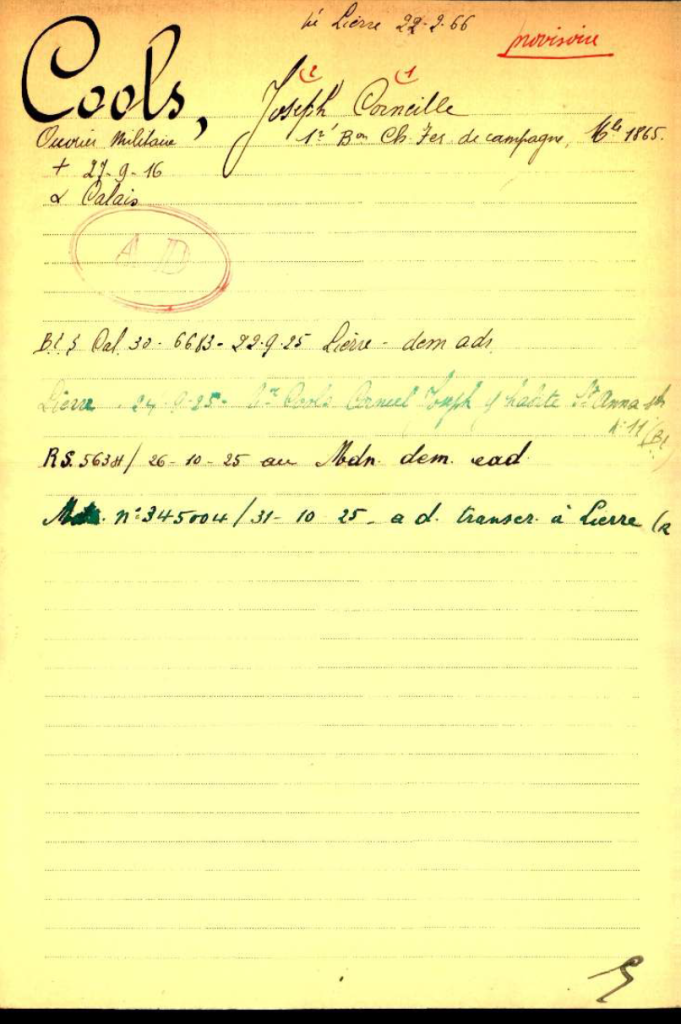 né Lierre 22-2-66
provisoire
Cools, Joseph Corneille
2 1
Ouvrier Militaire 1er Bon Ch. Fer de campagne, Mle 1865.
+ 27-9-16
à Calais
AD
Bt § Cal. 30-6613-22-9-25 Lierre - dem adr.
Lierre - 24-9-25- Cools Corneel Joseph y habite St Anna str
n° 11 (Bt
RS. 5638/ 26-10-25 au Mdn. dem. ead.
Mdn. n° 345004/31-10 25- a d. transcr. à Lierre